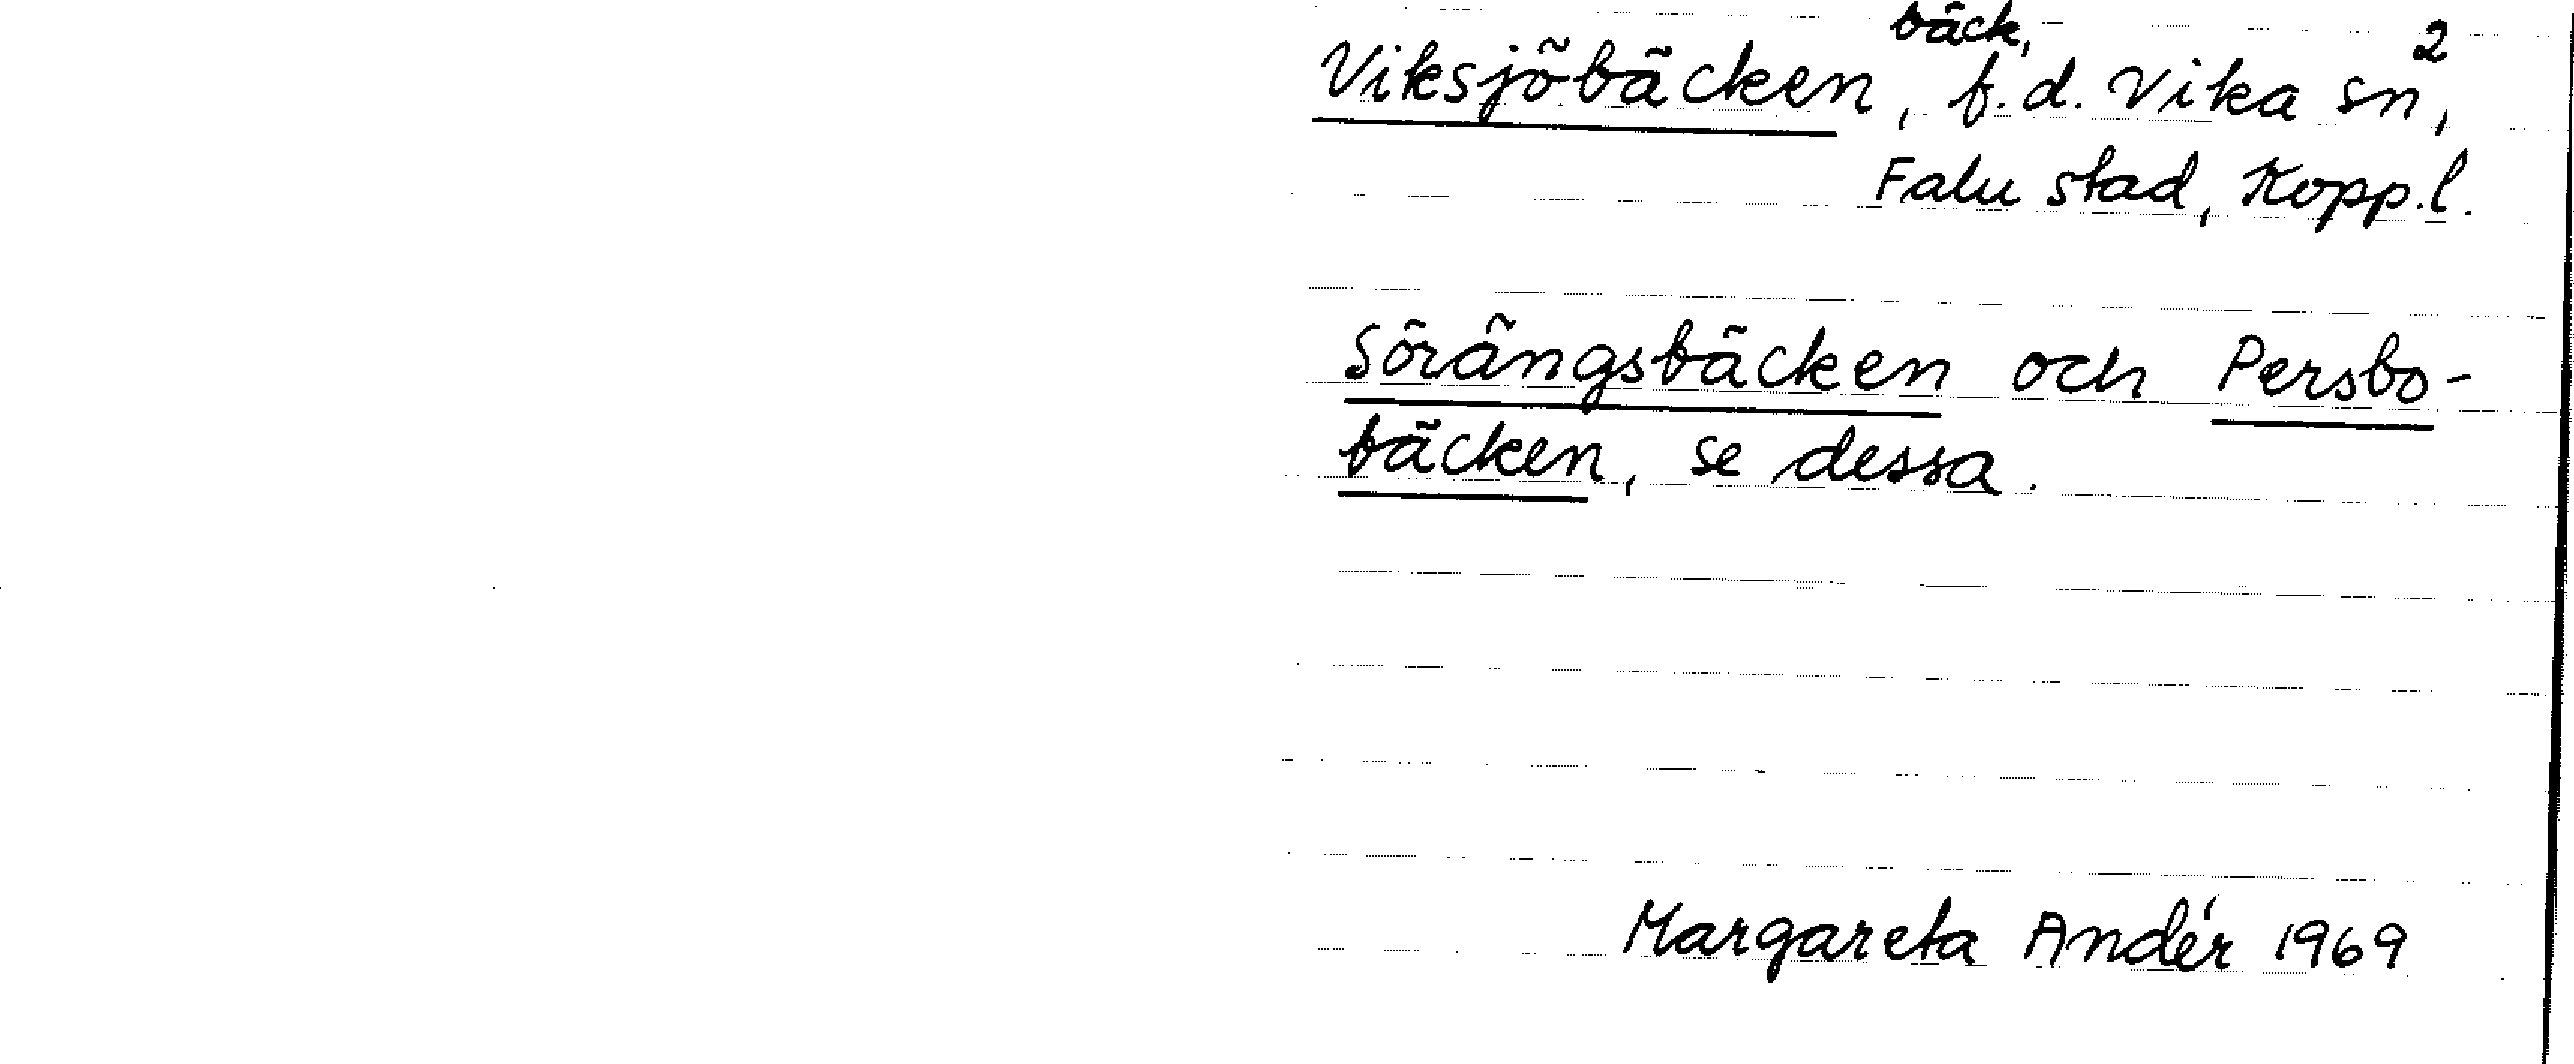 Viksjöbäcken, bäck, f.d. Vika sn, 2
Falu stad, Kopp.l.
Sörängsbäcken och Persbo-
bäcken, se dessa.
Margareta Andér 1969